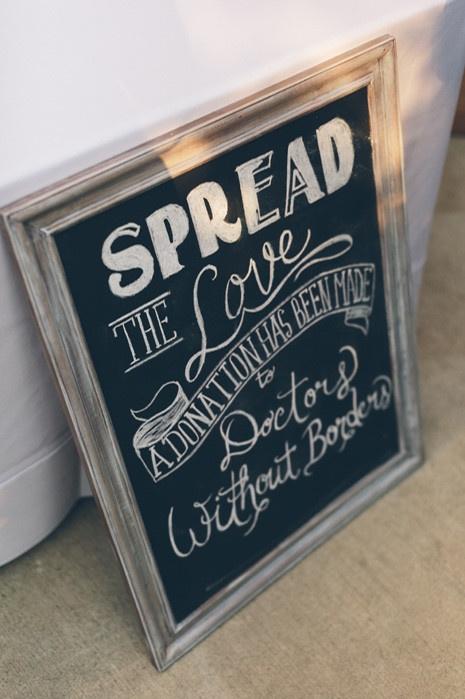 SPREAD
THE Love
A DONATION HAS BEEN MADE
to
Doctors
Without Borders